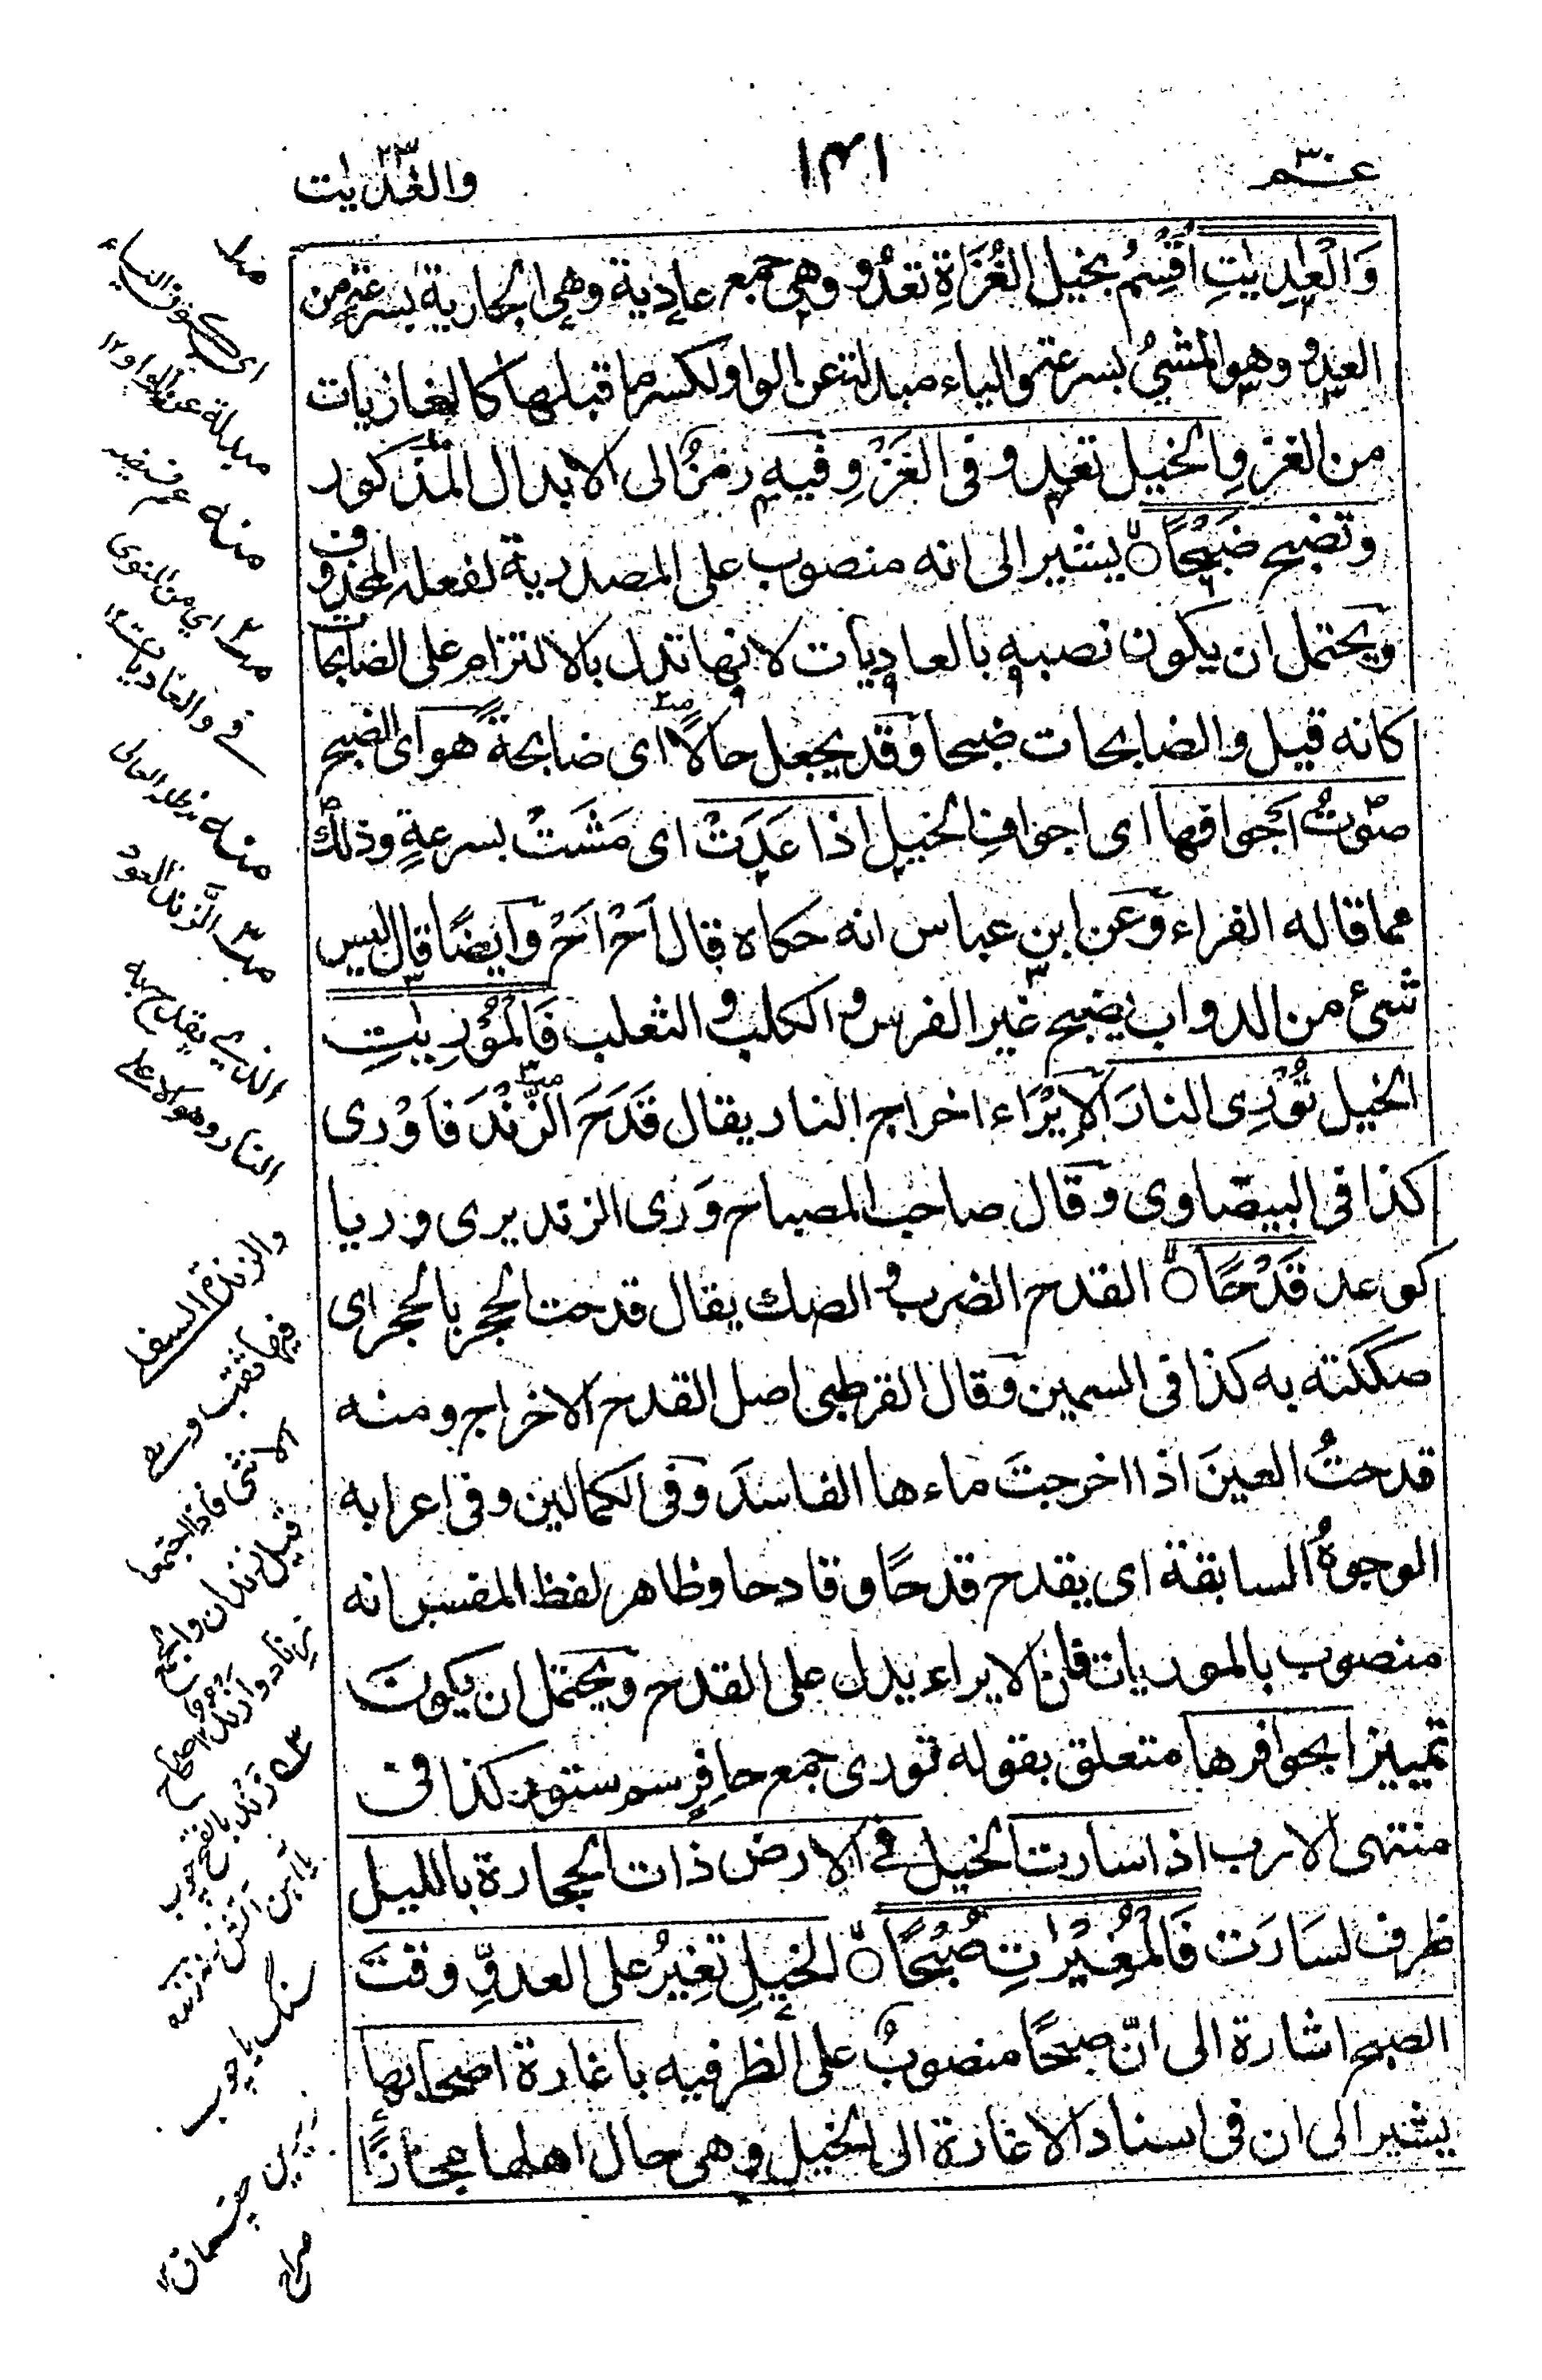 عـــم ٣٠
١٤١
والعٰدیٰت ٢٣
وَالْعٰدِيٰتِ اُقْسِمُ بخيل الغُزَاةِ تعدُو وهي جمع عادية وهي الجارية بسرعة من
العدو وهو المشيُ بسرعة والياء مبدلة عن الواو لكسر ما قبلها كالغازيات
من الغزو الخيل تعدو فى الغَزْوِ فيه رمزٌ الى الابدال المذكور
وتضبح ضَبْحًا يشير الى انه منصوب على المصدرية لفعله المحذوف
ويحتمل ان يكون نصبه بالعاديات لانها تدل بالالتزام على الضابحات
كانه قيل والضابحات ضبحا وقد يجعل حالاً اى ضابحةً هو اى الضبح
صوتُ اَجوافها اى اجوافِ الخيل اذا عَدَتْ اى مَشَتْ بسرعةٍ وذلك
مما قاله الفراء وعن ابن عباس انه حكاه قال اَحْ اَحْ وايضًا قال ليس
شئ من الدواب يضبح غير الفرس و الكلب و الثعلب فَالْمُوْرِيٰتِ
الخيل تُوْرِى النارَ الاِيْرَاء اخراج النار يقال قَدَحَ الزَّنْدَ فَاَوْرى
كذا فى البيضاوى وقال صاحب المصباح وَرَى الزند يرى وريا
كوعد قَدْحًا القدح الضرب و الصك يقال قدحت الحجر بالحجر اى
صككته به كذا فى السمين وقال القرطبى اصل القدح الاخراج ومنه
قدحتُ العينَ اذا اخرجتَ ماءها الفاسدَ وفى الكمالين وفى اعرابه
الوجوهُ السابقة اى يقدح قدحًا و قادحا وظاهر لفظ المفسر انه
منصوب بالموريات فان الايراء يدل على القدح ويحتمل ان يكون
تمييزا بحوافرها متعلق بقوله تورى جمع حافرٍ سم ستور كذا فى
منتهى الارب اذا سارت الخيل فى الارض ذات الحجارة بالليل
ظرف لسَارَت فَالْمُغِيْرٰتِ صُبْحًا الخيلِ تغِيْرُ على العدوِّ وقتَ
الصبح اشارة الى انّ صبحًا منصوبٌ على الظرفيه باغارة اصحابها
يشير الى ان فى اسناد الاغارة الى الخيل وهى حال اهلها مجازًا
مبدلة عن الواو ١٢
منه عم فيضه
اى من المنوى
فى والعاديات ١٢
منه مد ظله العالى
الزَّند العود
الذى يقدح به
النار وهو الاعلى
والزندة السفلى
فيها ثقب وهى
الانثى فاذا اجتمعا
قيل زندان والجمع
زناد وازند
زند بالفتح چوب
سنگ يا چوب